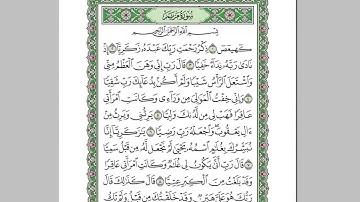 سُورَةُ مَرْيَمَ
بِسْمِ اللَّهِ الرَّحْمَٰنِ الرَّحِيمِ
كهيعص ۝ ذِكْرُ رَحْمَتِ رَبِّكَ عَبْدَهُ زَكَرِيَّا ۝ إِذْ
نَادَىٰ رَبَّهُ نِدَاءً خَفِيًّا ۝ قَالَ رَبِّ إِنِّي وَهَنَ الْعَظْمُ مِنِّي
وَاشْتَعَلَ الرَّأْسُ شَيْبًا وَلَمْ أَكُن بِدُعَائِكَ رَبِّ شَقِيًّا
۝ وَإِنِّي خِفْتُ الْمَوَالِيَ مِن وَرَاءِي وَكَانَتِ امْرَأَتِي
عَاقِرًا فَهَبْ لِي مِن لَّدُنكَ وَلِيًّا ۝ يَرِثُنِي وَيَرِثُ مِنْ
آلِ يَعْقُوبَ وَاجْعَلْهُ رَبِّ رَضِيًّا ۝ يَا زَكَرِيَّا إِنَّا
نُبَشِّرُكَ بِغُلَامٍ اسْمُهُ يَحْيَىٰ لَمْ نَجْعَل لَّهُ مِن قَبْلُ سَمِيًّا
۝ قَالَ رَبِّ أَنَّىٰ يَكُونُ لِي غُلَامٌ وَكَانَتِ امْرَأَتِي عَاقِرًا
وَقَدْ بَلَغْتُ مِنَ الْكِبَرِ عِتِيًّا ۝ قَالَ كَذَٰلِكَ قَالَ
رَبُّكَ هُوَ عَلَيَّ هَيِّنٌ وَقَدْ خَلَقْتُكَ مِن قَبْلُ وَلَمْ تَكُ